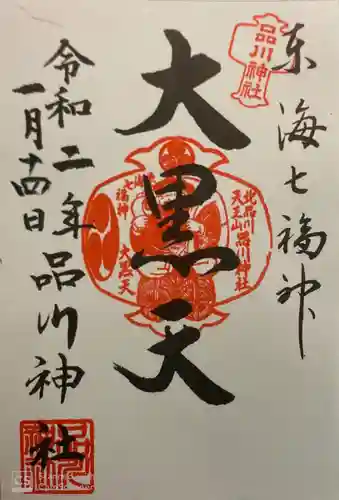 品川神社
東海七福神
大黒天
北品川
天王山
品川神社
七福神
大黒天
令和二年品川神社
一月十四日